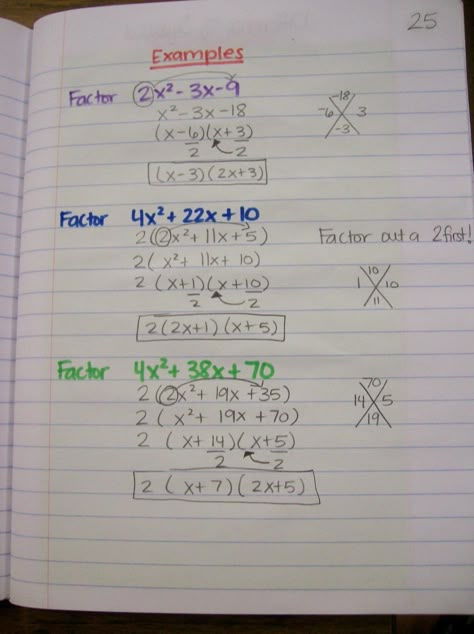 25
Examples
Factor 2x² - 3x - 9
x² - 3x - 18
(x - 6)(x + 3)
2 2
(x - 3)(2x + 3)
-18
-6 3
-3
Factor 4x² + 22x + 10
2(2x² + 11x + 5)
Factor out a 2 first!
2(x² + 11x + 10)
2 (x + 1)(x + 10)
2 2
2(2x + 1)(x + 5)
10
1 10
11
Factor 4x² + 38x + 70
2(2x² + 19x + 35)
2(x² + 19x + 70)
2 (x + 14)(x + 5)
2 2
2 (x + 7)(2x + 5)
70
14 5
19